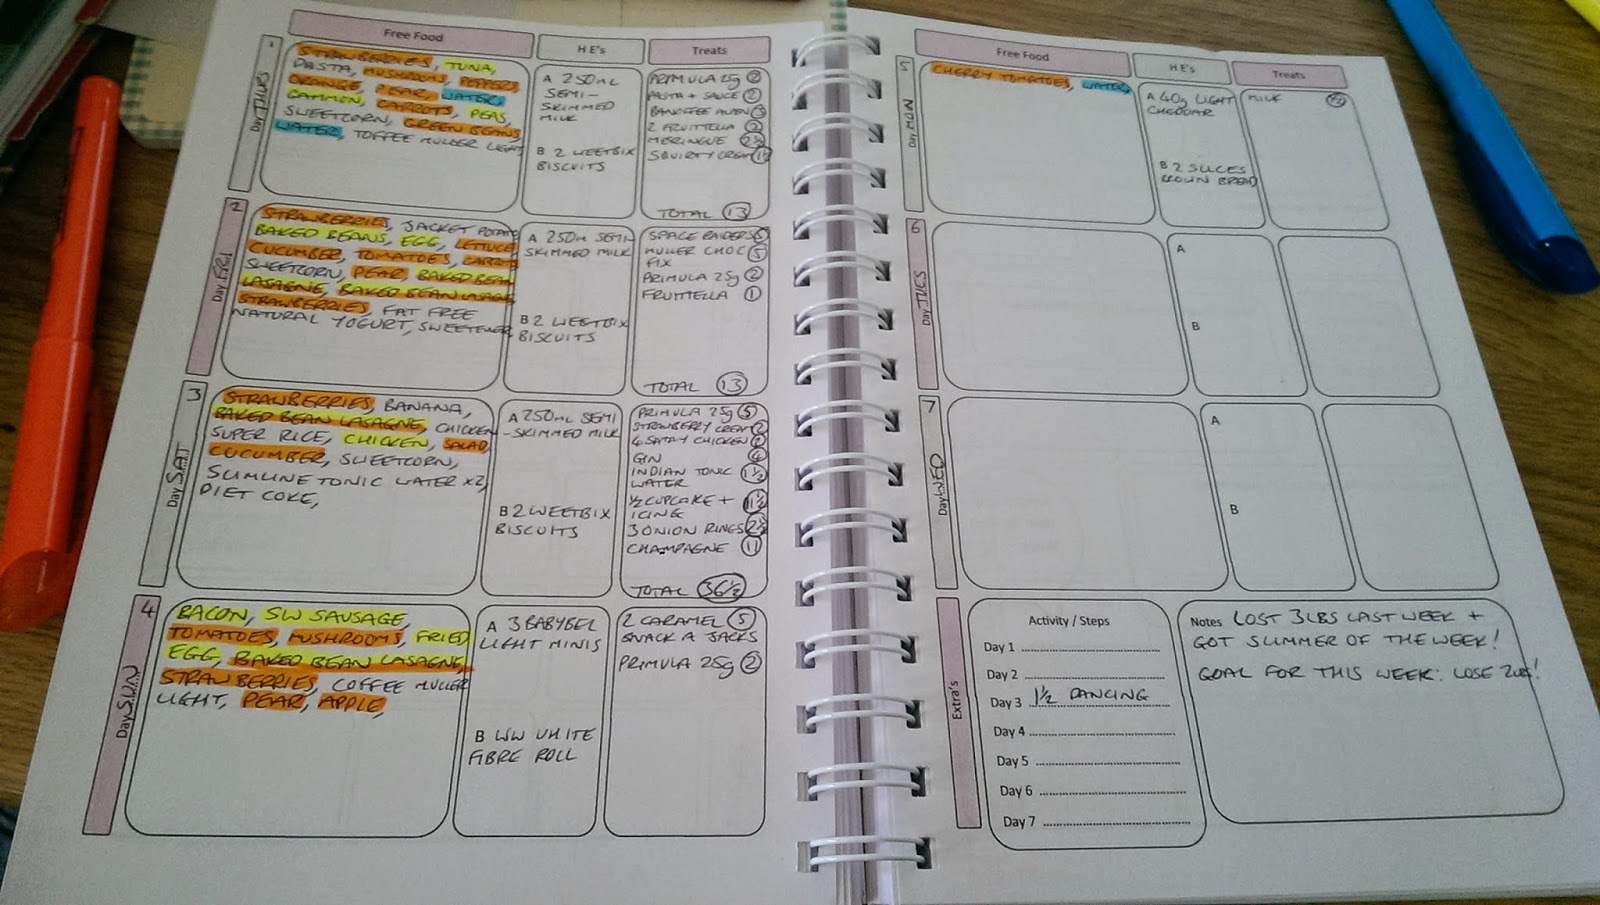 Free Food
HE's
Treats
1
Day THUS
STRAWBERRIES, TUNA,
PASTA, MUSHROOMS, PEPPERS,
ORANGE, PEAR, WATER,
GAMMON, CARROTS, PEAS,
SWEETCORN, GREEN BEANS,
WATER, TOFFEE MULLER LIGHT,
A 250ML
SEMI-
SKIMMED
MILK
B 2 WEETBIX
BISCUITS
PRIMULA 25g 2
PASTA + SAUCE 2
BANOFFEE 3
2 FRUITTELLA 2
MERINGUE 2½
SQUIRTY CREAM 1½
TOTAL 13
2
Day FRI
STRAWBERRIES, JACKET POTATO
BAKED BEANS, EGG, LETTUCE
CUCUMBER, TOMATOES, CARROTS
SWEETCORN, PEAR, BAKED BEAN
LASAGNE, BAKED BEAN LASAGNE
STRAWBERRIES, FAT FREE
NATURAL YOGURT, SWEETENER,
A 250ML SEMI-
SKIMMED MILK
B 2 WEETBIX
BISCUITS
SPACE RAIDERS 5
MULLER CHOC 5
FIX
PRIMULA 25g 2
FRUITTELLA 1
TOTAL 13
3
Day SAT
STRAWBERRIES, BANANA,
BAKED BEAN LASAGNE, CHICKEN
SUPER RICE, CHICKEN, SALAD,
CUCUMBER, SWEETCORN,
SLIMLINE TONIC WATER X2,
DIET COKE,
A 250ML SEMI
-SKIMMED MILK
B 2 WEETBIX
BISCUITS
PRIMULA 25g 5
STRAWBERRY CREAM 2
4 SATAY CHICKEN 2
GIN 4
INDIAN TONIC 1½
WATER
½ CUPCAKE + 11½
ICING
3 ONION RINGS 2½
CHAMPAGNE 11
TOTAL 36½
4
Day SUN
BACON, SW SAUSAGE,
TOMATOES, MUSHROOMS, FRIED
EGG, BAKED BEAN LASAGNE,
STRAWBERRIES, COFFEE MULLER
LIGHT, PEAR, APPLE,
A 3 BABYBEL
LIGHT MINIS
B WW WHITE
FIBRE ROLL
2 CARAMEL 5
SNACK A JACKS
PRIMULA 25g 2
Free Food
HE's
Treats
5
Day MON
CHERRY TOMATOES, WATER,
A 40g LIGHT
CHEDDAR
B 2 SLICES
BROWN BREAD
MILK
6
Day TUES
A
B
7
Day WED
A
B
Extra's
Activity / Steps
Day 1
Day 2
Day 3 1½ DANCING
Day 4
Day 5
Day 6
Day 7
Notes LOST 3LBS LAST WEEK +
GOT SLIMMER OF THE WEEK!
GOAL FOR THIS WEEK: LOSE 2LBS!